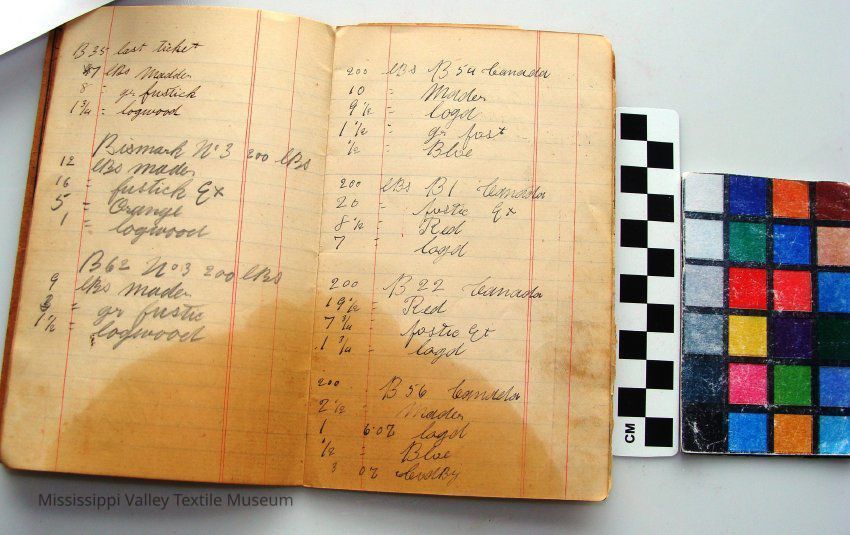 B 35 last ticket
47 lbs Madder
8 " gr fustick
1 3/4 " logwood
Bismark No 3 200 lbs
12 lbs mader
16 " fustick Ex
5 " Orange
1 " logwood
B62 No 3 200 lbs
9 lbs mader
" gr fustic
1 1/2 " logwood
200 lbs B 54 Canada
10 " Mader
9 1/2 " logd
1 1/2 " gr fost
1/2 " Blue
200 lbs B1 Canada
20 " fostic Ex
8 1/2 " Red
7 " logd
200 B 22 Canada
19 1/2 " Red
7 3/4 " fostic Ex
1 3/4 " logd
200 B 56 Canada
2 1/2 " Mader
1 6 oz logd
1/2 " Blue
3 oz
CM
Mississippi Valley Textile Museum